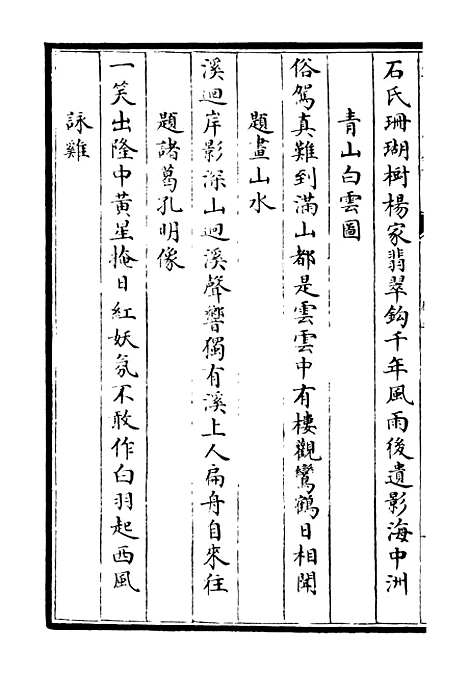 石氏珊瑚樹楊家翡翠鈎千年風雨後遺影海中洲
青山白雲圖
俗駕真難到滿山都是雲雲中有樓觀鸞鶴日相聞
題畫山水
溪迴岸影深山迴溪聲響獨有溪上人扁舟自來往
題諸葛孔明像
一笑出隆中黃星掩日紅妖氛不敢作白羽起西風
詠雞